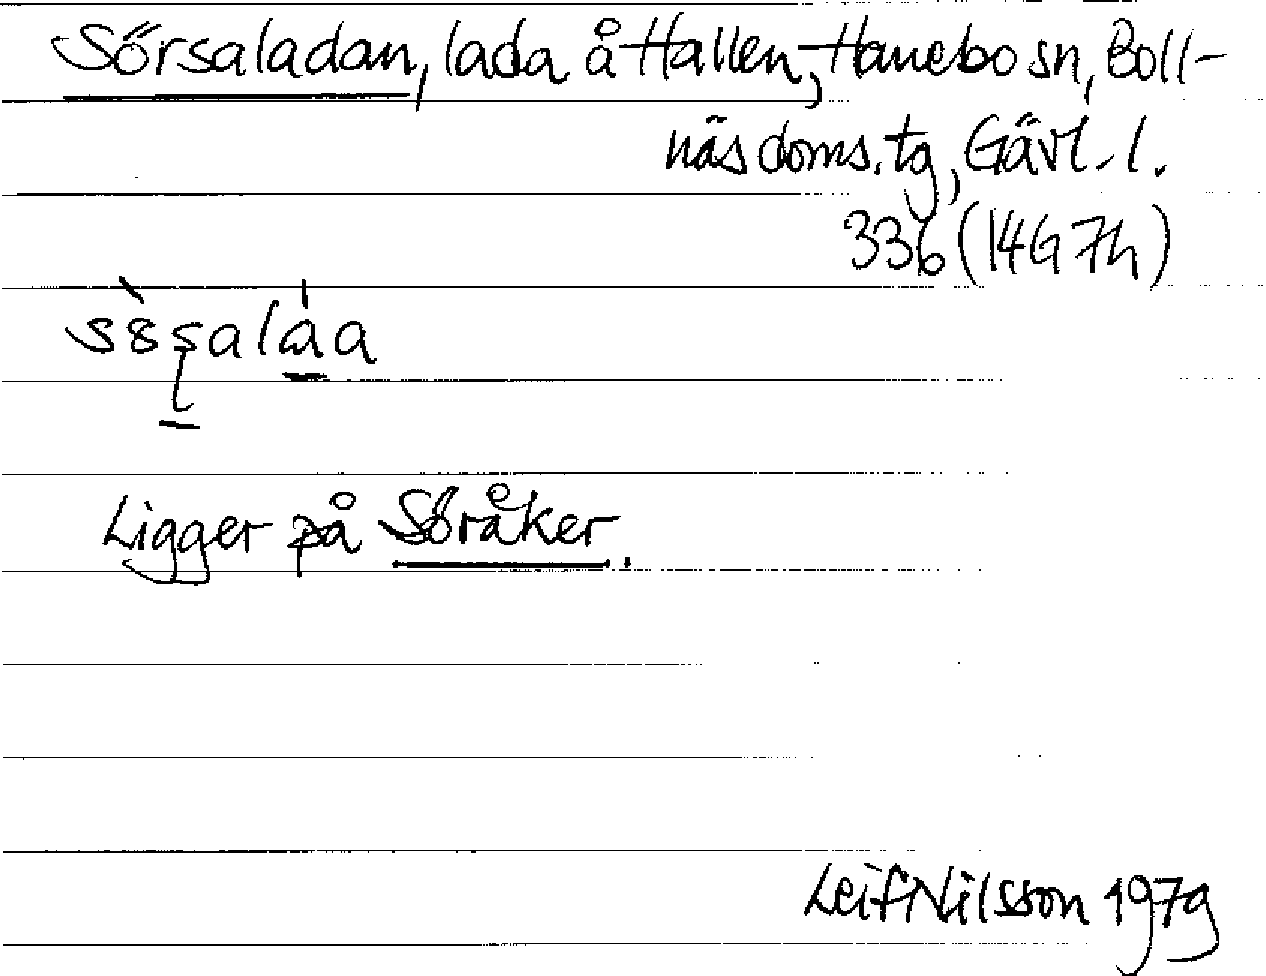 Sörsaladan, lada å Hallen, Hanebo sn, Boll-
näs doms. tg, Gävl. l.
336 (14G 7h)
Ligger på Söråker.
Leif Nilsson 1979